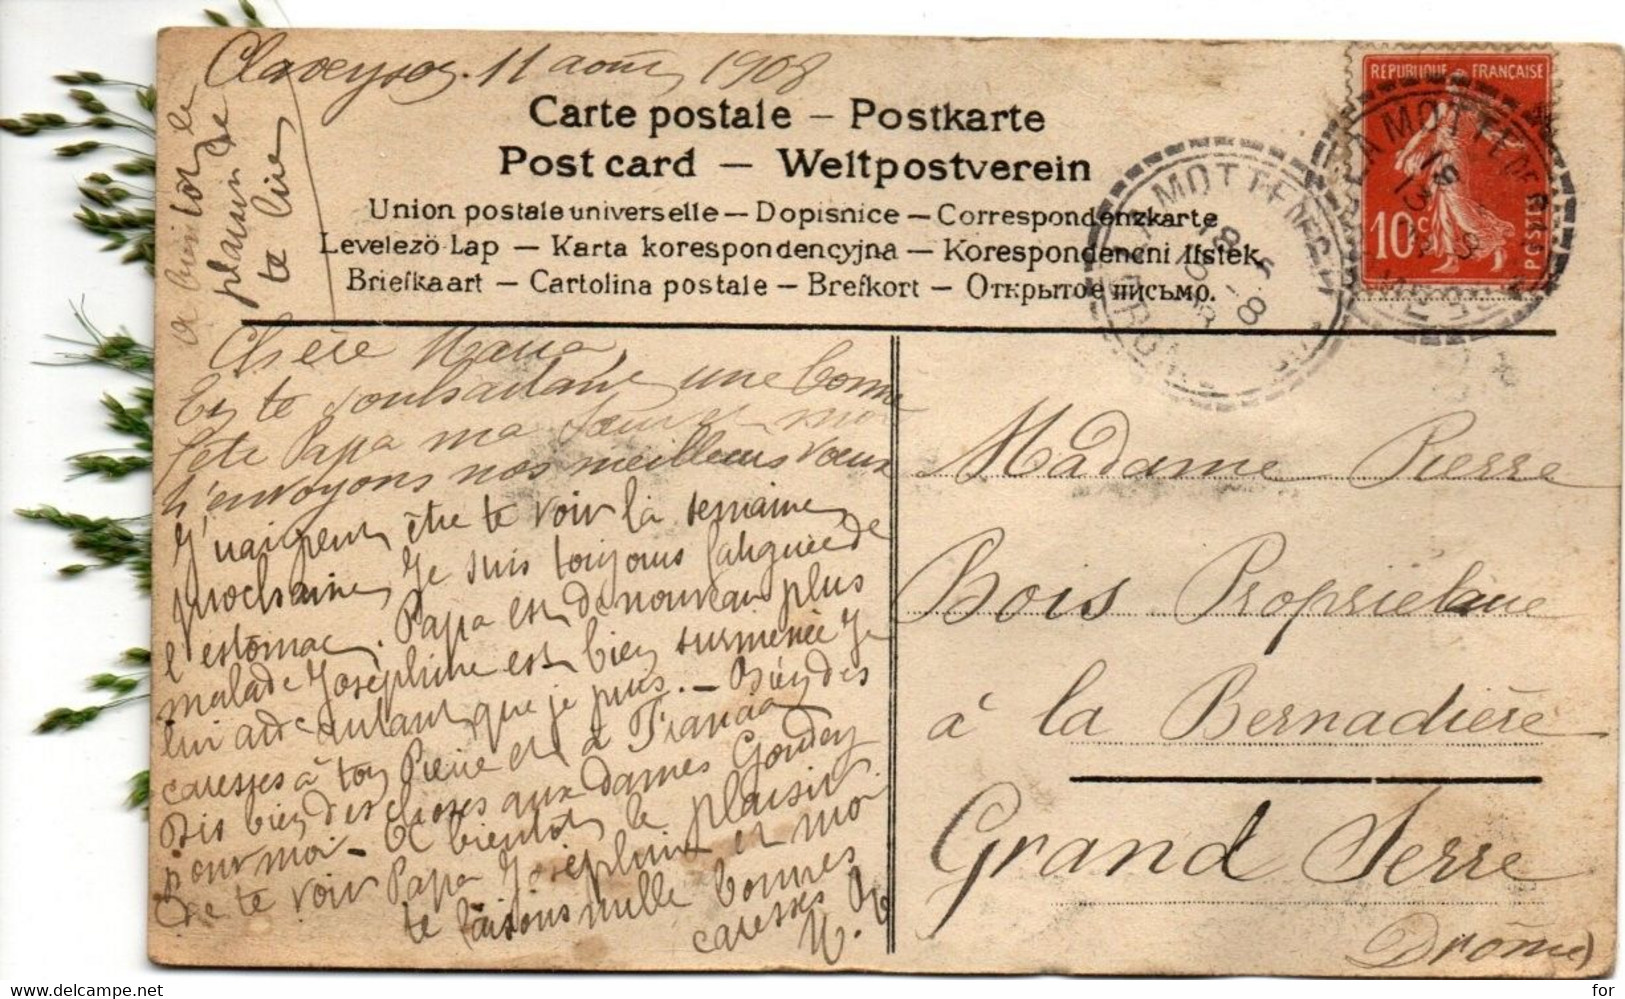 Claveyson. 11 août 1908
a bientôt le
plaisir de
te lire
Carte postale – Postkarte
Post card – Weltpostverein
Union postale universelle – Dopisnice – Correspondenzkarte
Levelező Lap – Karta korespondencyjna – Korespondencni listek
Briefkaart – Cartolina postale – Brefkort – Открытое письмо.
REPUBLIQUE FRANÇAISE
10 c
POSTES
LA MOTTE DE
LA MOTTE DE
DROME
Chère Maria
En te souhaitant une bonne
fête Papa ma Sœur et moi
t'envoyons nos meilleurs vœux
J'irai peut être te voir la semaine
prochaine, Je suis toujours fatiguée de
l'estomac. Papa est de nouveau plus
malade Joséphine est bien surmenée Je
lui aide autant que je puis. – Bien des
caresses à ton Pierre et à
Dis bien des choses aux dames
pour moi – A bientôt le plaisir
de te voir Papa Joséphine et moi
te faisons mille bonnes
caresses
Madame Pierre
Bois Propriétaire
à la Bernadière
Grand Serre
Drôme)
www.delcampe.net
for